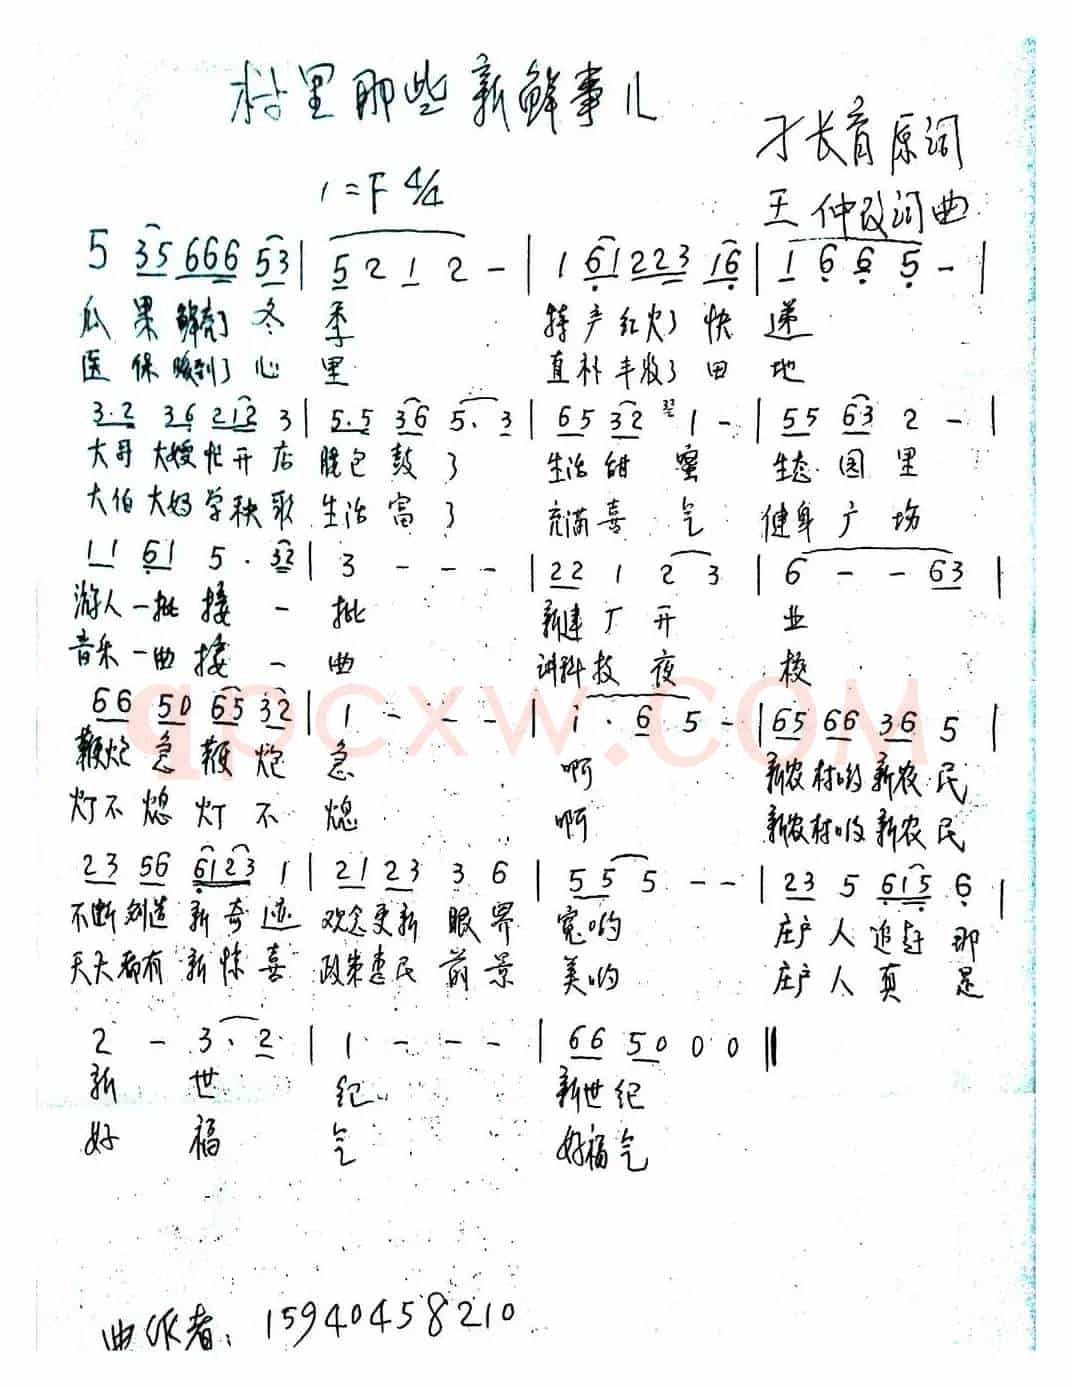 村里那些新鲜事儿
才长育原词
1=F 4/4
王仲改词曲
5 35 666 53 | 5 2 1 2 - | 1 61 223 16 | 1 6 6 5 - |
瓜果鲜亮了冬季 特产红火了快递
医保暖到了心里 直补丰收了田地
3.2 36 212 3 | 5.5 36 5.3 | 65 32 1 - | 55 63 2 - |
大哥大嫂忙开店 腰包鼓了 生活甜蜜 生态园里
大伯大妈学秧歌 生活富了 充满喜气 健身广场
11 61 5.32 | 3 - - - | 22 1 2 3 | 6 - - 63 |
游人一批接一批 新建厂开业
音乐一曲接一曲 讲科技夜校
66 50 65 32 | 1 - - - | i.6 5 - | 65 66 36 5 |
鞭炮急鞭炮急 啊 新农村哟新农民
灯不熄灯不熄 啊 新农村哟新农民
23 56 6123 1 | 21 23 3 6 | 55 5 - - | 23 5 615 6 |
不断创造新奇迹 观念更新眼界宽哟 庄户人追赶那
天天都有新惊喜 政策惠民前景美哟 庄户人真是
2 - 3.2 | 1 - - - | 66 50 0 0 ‖
新世纪 新世纪
好福气 好福气
qpcxw.COM
曲作者：15940458210